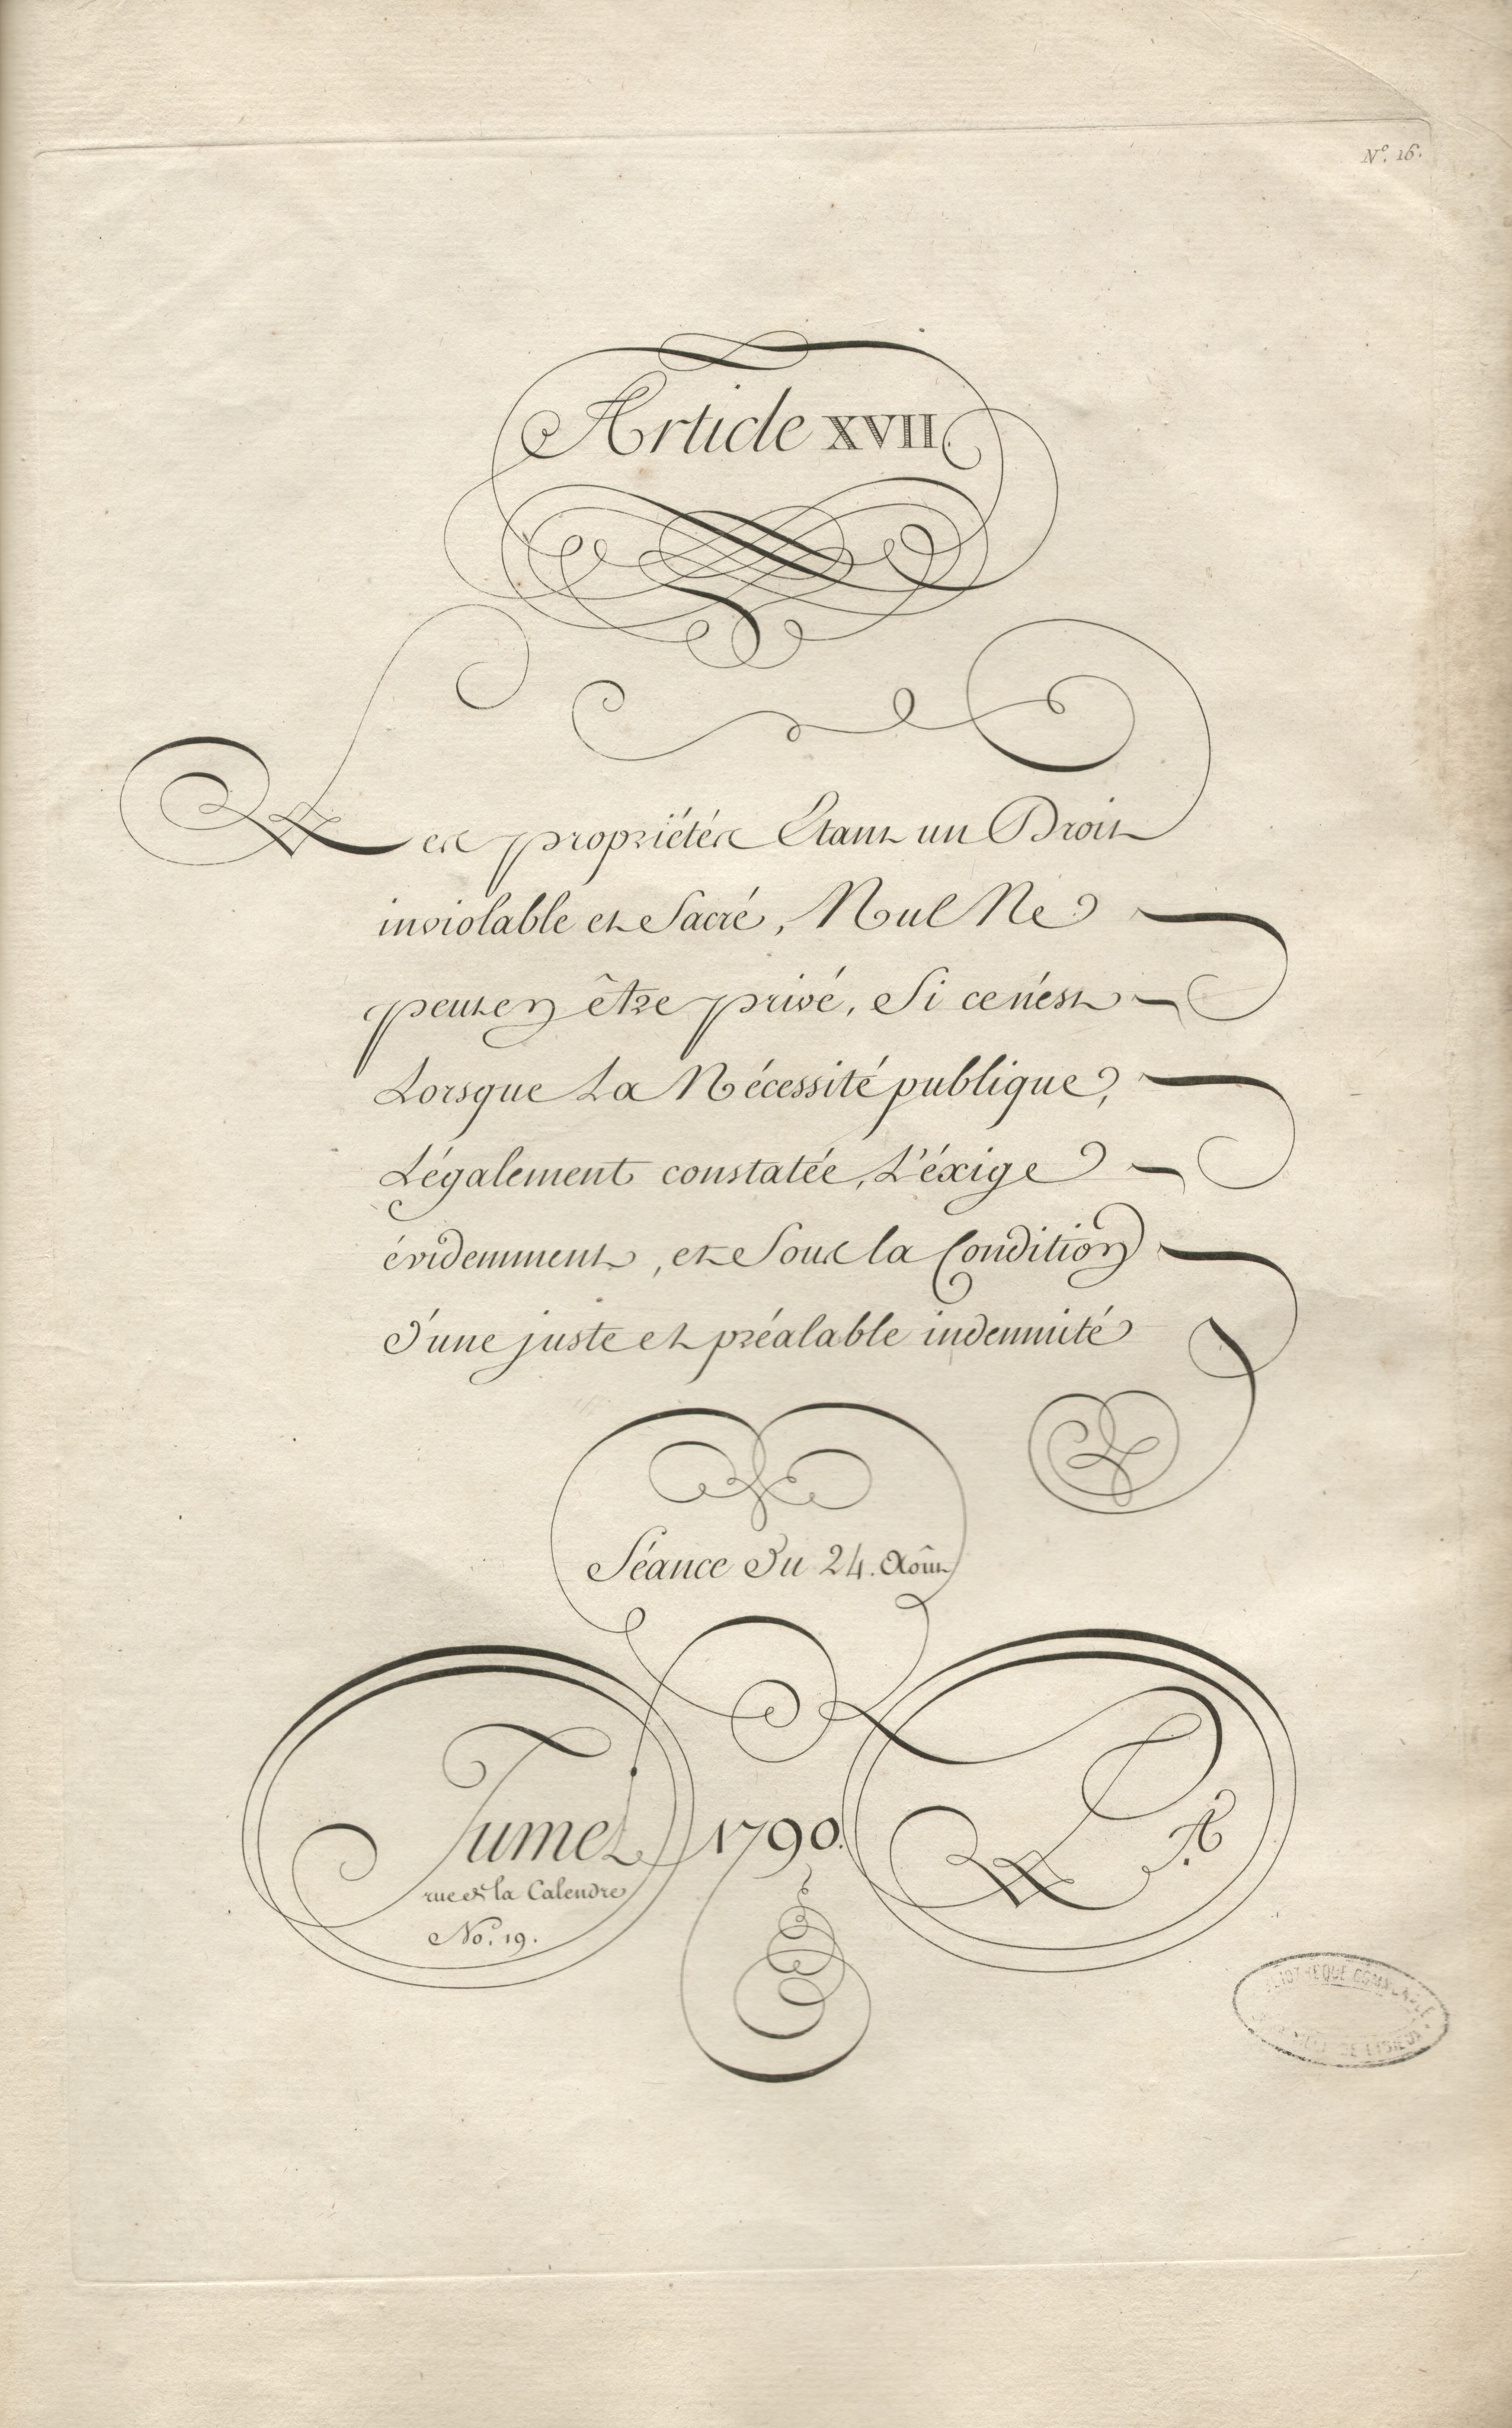 No. 16.
Article XVII.
Les propriétés Etant un Droit
inviolable et Sacré, Nul Ne
peut en être privé, Si ce n'est
Lorsque La Nécessité publique,
Légalement constatée, L'éxige
évidemment, et Sous la Condition
d'une juste et préalable indemnité
Séance du 24. Août
Jumel 1790.
rue de la Calendre
No. 19.
BIBLIOTHEQUE COMMUNALE
VILLE DE LISIEUX